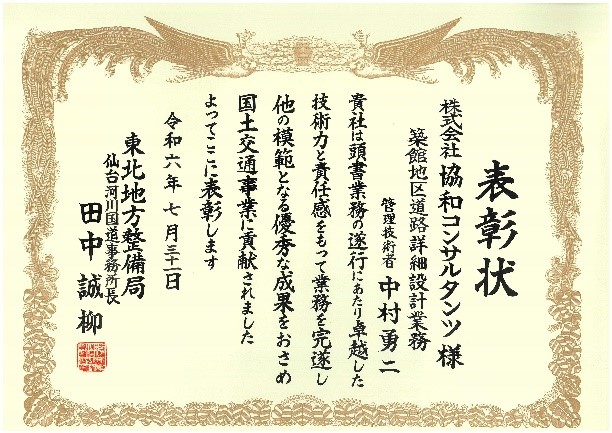 表彰状
株式会社 協和コンサルタンツ 様
築館地区道路詳細設計業務
管理技術者 中村勇二
貴社は頭書業務の遂行にあたり卓越した
技術力と責任感をもって業務を完遂し
他の模範となる優秀な成果をおさめ
国土交通事業に貢献されました
よってここに表彰します
令和六年七月三十一日
東北地方整備局
仙台河川国道事務所長
田中誠柳